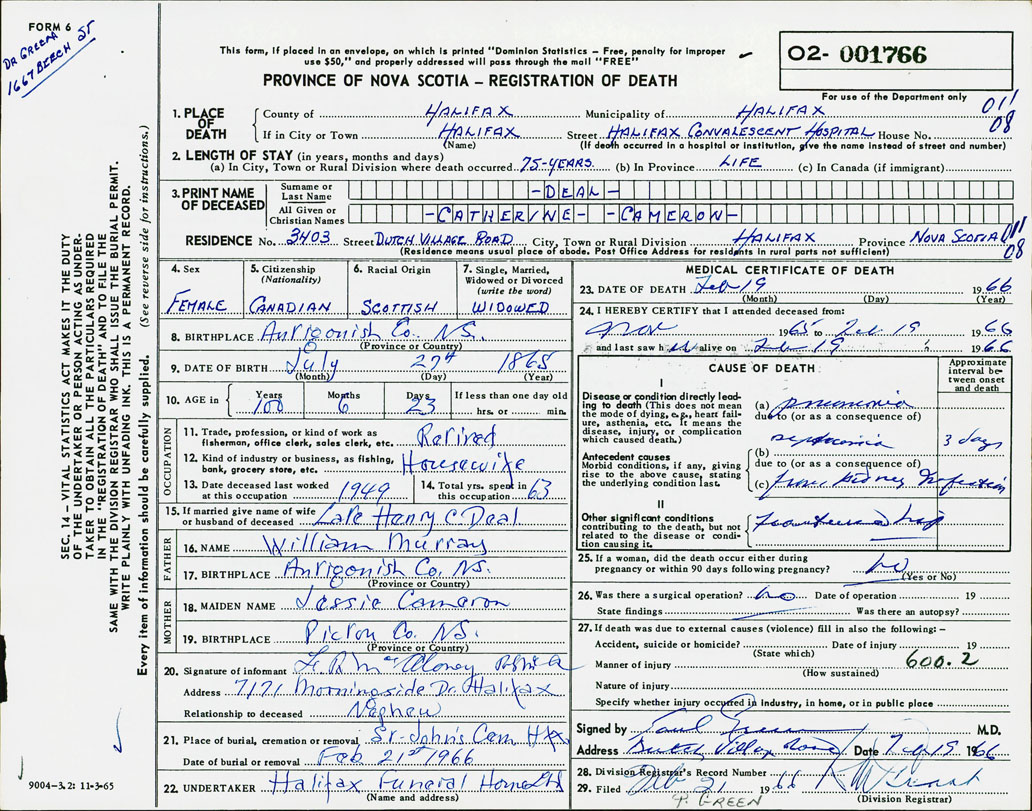 FORM 6
DR GREEN
1667 BEECH ST
This form, if placed in an envelope, on which is printed "Dominion Statistics – Free, penalty for improper
use $50," and properly addressed will pass through the mail "FREE"
PROVINCE OF NOVA SCOTIA – REGISTRATION OF DEATH
O2- 001766
For use of the Department only
011
08
1. PLACE OF DEATH
County of HALIFAX Municipality of HALIFAX
If in City or Town HALIFAX Street HALIFAX CONVALESCENT HOSPITAL House No.
(Name) (If death occurred in a hospital or institution, give the name instead of street and number)
2. LENGTH OF STAY (in years, months and days)
(a) In City, Town or Rural Division where death occurred 75-YEARS. (b) In Province LIFE (c) In Canada (if immigrant)
3. PRINT NAME OF DECEASED
Surname or Last Name -DEAL-
All Given or Christian Names -CATHERINE- -CAMERON-
RESIDENCE No. 3403 Street DUTCH VILLAGE ROAD City, Town or Rural Division HALIFAX Province NOVA SCOTIA
(Residence means usual place of abode. Post Office Address for residents in rural parts not sufficient)
08
4. Sex
FEMALE
5. Citizenship (Nationality)
CANADIAN
6. Racial Origin
SCOTTISH
7. Single, Married, Widowed or Divorced (write the word)
WIDOWED
8. BIRTHPLACE Antigonish Co. NS.
(Province or Country)
9. DATE OF BIRTH July 27th 1865
(Month) (Day) (Year)
10. AGE in Years 100 Months 6 Days 23 If less than one day old hrs. or min.
OCCUPATION
11. Trade, profession, or kind of work as fisherman, office clerk, sales clerk, etc. Retired
12. Kind of industry or business, as fishing, bank, grocery store, etc. Housewife
13. Date deceased last worked at this occupation 1949 14. Total yrs. spent in this occupation 63
15. If married give name of wife or husband of deceased Late Henry C Deal
FATHER
16. NAME William Murray
17. BIRTHPLACE Antigonish Co. NS.
(Province or Country)
MOTHER
18. MAIDEN NAME Jessie Cameron
19. BIRTHPLACE Pictou Co. NS.
(Province or Country)
20. Signature of informant
Address 7171 Morningside Dr. Halifax
Relationship to deceased Nephew
21. Place of burial, cremation or removal St-John's Cem Hfx
Date of burial or removal Feb 21st 1966
22. UNDERTAKER Halifax Funeral Home
(Name and address)
MEDICAL CERTIFICATE OF DEATH
23. DATE OF DEATH Feb 19 1966
(Month) (Day) (Year)
24. I HEREBY CERTIFY that I attended deceased from:
Nov 1965 to Feb 19 1966
and last saw h alive on Feb 19 " 1966
CAUSE OF DEATH
Approximate interval between onset and death
I
Disease or condition directly leading to death (This does not mean the mode of dying, e.g., heart failure, asthenia, etc. It means the disease, injury, or complication which caused death.)
(a) pneumonia
due to (or as a consequence of)
Antecedent causes
Morbid conditions, if any, giving rise to the above cause, stating the underlying condition last.
(b) 3 days
due to (or as a consequence of)
(c) from kidney infection
II
Other significant conditions contributing to the death, but not related to the disease or condition causing it.
25. If a woman, did the death occur either during pregnancy or within 90 days following pregnancy? no
(Yes or No)
26. Was there a surgical operation? no Date of operation 19
State findings Was there an autopsy?
27. If death was due to external causes (violence) fill in also the following: –
Accident, suicide or homicide? Date of injury 19
(State which)
Manner of injury 600.2
(How sustained)
Nature of injury
Specify whether injury occurred in industry, in home, or in public place
Signed by M.D.
Address Dutch Village Road Date Feb 19 1966
28. Division Registrar's Record Number
29. Filed Feb 21 1966
(Division Registrar)
P. GREEN
SEC. 14 – VITAL STATISTICS ACT MAKES IT THE DUTY
OF THE UNDERTAKER OR PERSON ACTING AS UNDER-
TAKER TO OBTAIN ALL THE PARTICULARS REQUIRED
IN THE "REGISTRATION OF DEATH" AND TO FILE THE
SAME WITH THE DIVISION REGISTRAR WHO SHALL ISSUE THE BURIAL PERMIT.
WRITE PLAINLY WITH UNFADING INK. THIS IS A PERMANENT RECORD.
Every item of information should be carefully supplied. (See reverse side for instructions.)
9004-3.2: 11-3-65